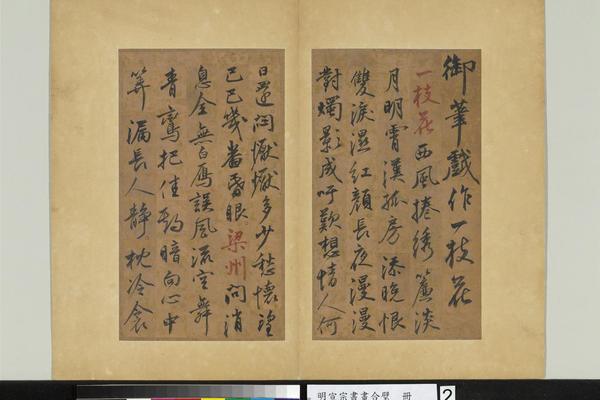 御筆戲作一枝花
一枝花西風捲綉簾淡
月明霄漢孤房添晚恨
雙淚濕紅顏長夜漫漫
對燭影成吁歎想情人何
日還悶懨懨多少愁懷望
巴巴幾番昏眼梁州問消
息全無白鴈誤風流空舞
青鸞把佳約暗向心中
筭漏長人靜枕冷衾
明宣宗書畫合璧 冊 2